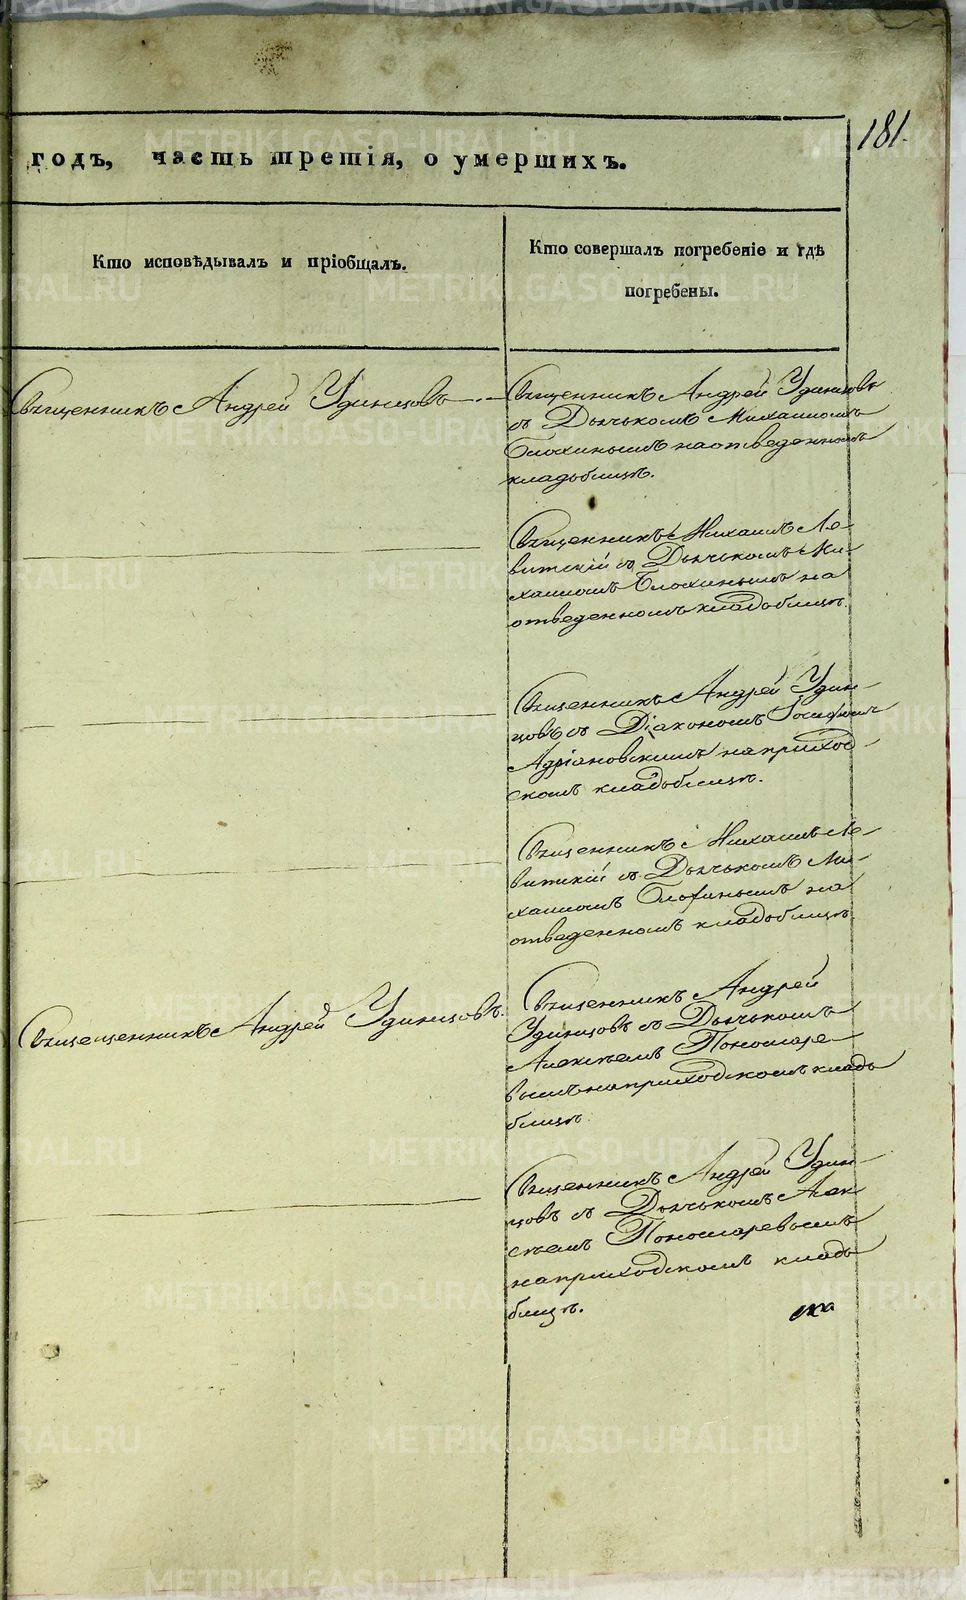 181.
годъ, часть третія, о умершихъ.
Кто исповѣдывалъ и пріобщалъ.
Кто совершалъ погребеніе и гдѣ
погребены.
Священникъ Андрей Удинцовъ
Священникъ Андрей Удинцовъ
съ Дьячькомъ Михаиломъ
Блохинымъ на отведенномъ
кладьбищѣ.
Священникъ Михаилъ Ле-
витскій съ Дьячькомъ Ми-
хаиломъ Блохинымъ на
отведенномъ кладбищѣ.
Священникъ Андрей Удин-
цовъ съ Діакономъ Іосифомъ
Адріановскимъ на приход-
скомъ кладбищѣ.
Священникъ Михаилъ Ле-
витскій съ Дьячькомъ Ми-
хаиломъ Блохинымъ на
отведенномъ кладбищѣ
Священникъ Андрей Удинцовъ.
Священникъ Андрей
Удинцовъ съ Дьячькомъ
Алексѣемъ Пономаре-
вымъ на приходскомъ кладь
бищѣ
Священникъ Андрей Удин-
цовъ съ Дьячькомъ Алек-
сѣемъ Пономаревымъ
на приходскомъ кладь
бищѣ.
METRIKI.GASO-URAL.RU